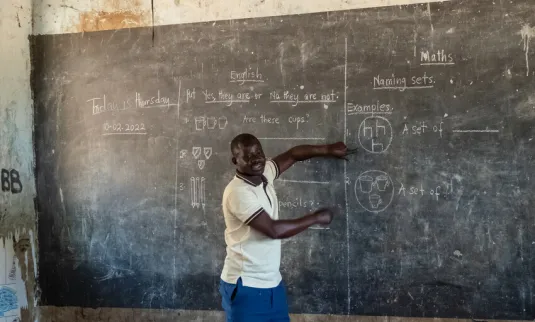 BB
Today is Thursday
10-02-2022
English
Put Yes they are or No they are not.
Are these cups?
pencils?
Maths
Naming sets.
Examples.
A set of
A set of